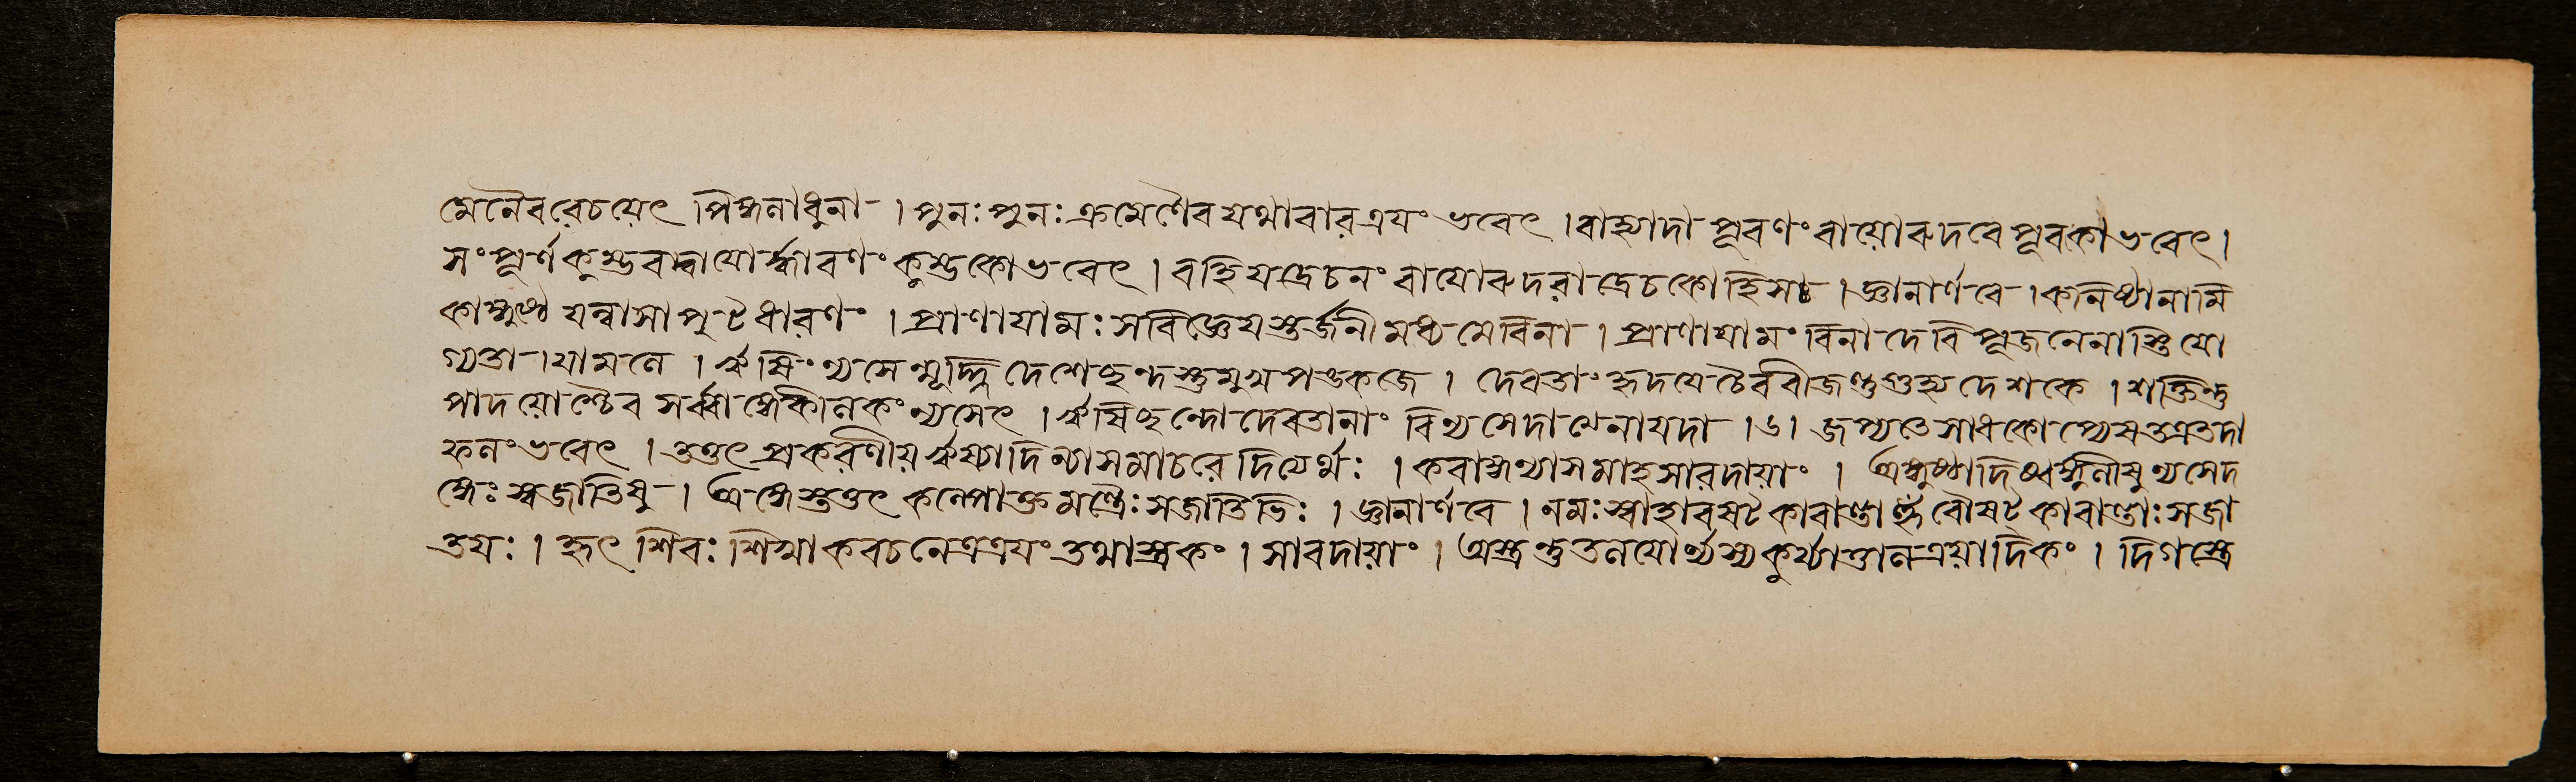 মেনৈবরেচয়েৎ পিঙ্গনাধুনা । পুনঃ পুনঃ ক্রমেণৈব যথাবারত্রযং ভবেৎ । বাহ্যাদা পূরণং বায়োরুদরে পূরকোভবেৎ ।
সংপূর্ণকুম্ভবদ্বাযোর্দ্ধারণং কুম্ভকোভবেৎ । বহির্যদ্রেচনং বাযোরুদরাদ্রেচকোহিসঃ । জ্ঞানার্ণবে । কনিষ্ঠানামি
কাঙ্গুষ্ঠৈ র্যন্নাসাপুটধারণং । প্রাণাযামঃ সবিজ্ঞেযস্তর্জনীমধ্যমেবিনা । প্রাণাযামং বিনা দেবি পূজনেনাস্তি যো
গ্যতা । যামনে । ঋষিং ন্যসেন্মূর্দ্ধ্নি দেশেছন্দস্তুমুখপঙ্কজে । দেবতাং হৃদযেচৈববীজন্তুগুহ্যদেশকে । শক্তিন্তু
পাদয়োশ্চৈব সর্ব্বাঙ্গেকীনকং ন্যসেৎ । ঋষিছন্দোদেবতানাং বিন্যসেদা যেনাযদা । ৬ । জপ্যতেসাধকোপ্যেস তত্রতদা
ফনংভবেৎ । তত্তৎ প্রকরণীয়ঋষ্যাদিন্যাসমাচরেদিত্যর্থঃ । করাঙ্গন্যাসমাহসারদায়াং । অঙ্গুষ্ঠাদিষ্বঙ্গুনীষুন্যসেদ
ঙ্গৈঃ স্বজাতিষু । অঙ্গেস্তত্তৎ কল্পোক্তমন্ত্রৈঃ সজাতিভিঃ । জ্ঞানার্ণবে । নমঃস্বাহাবষট্কারান্তাহুঁ বৌষট্কারান্তাঃ সজা
তযঃ । হৃৎ শিরঃ শিখাকবচনেত্রত্রযং তথাস্ত্রকং । সারদায়াং । অস্ত্রন্তুতনযোর্ন্যস্য কুর্য্যাত্তানত্রয়াদিকং । দিগস্ত্রে